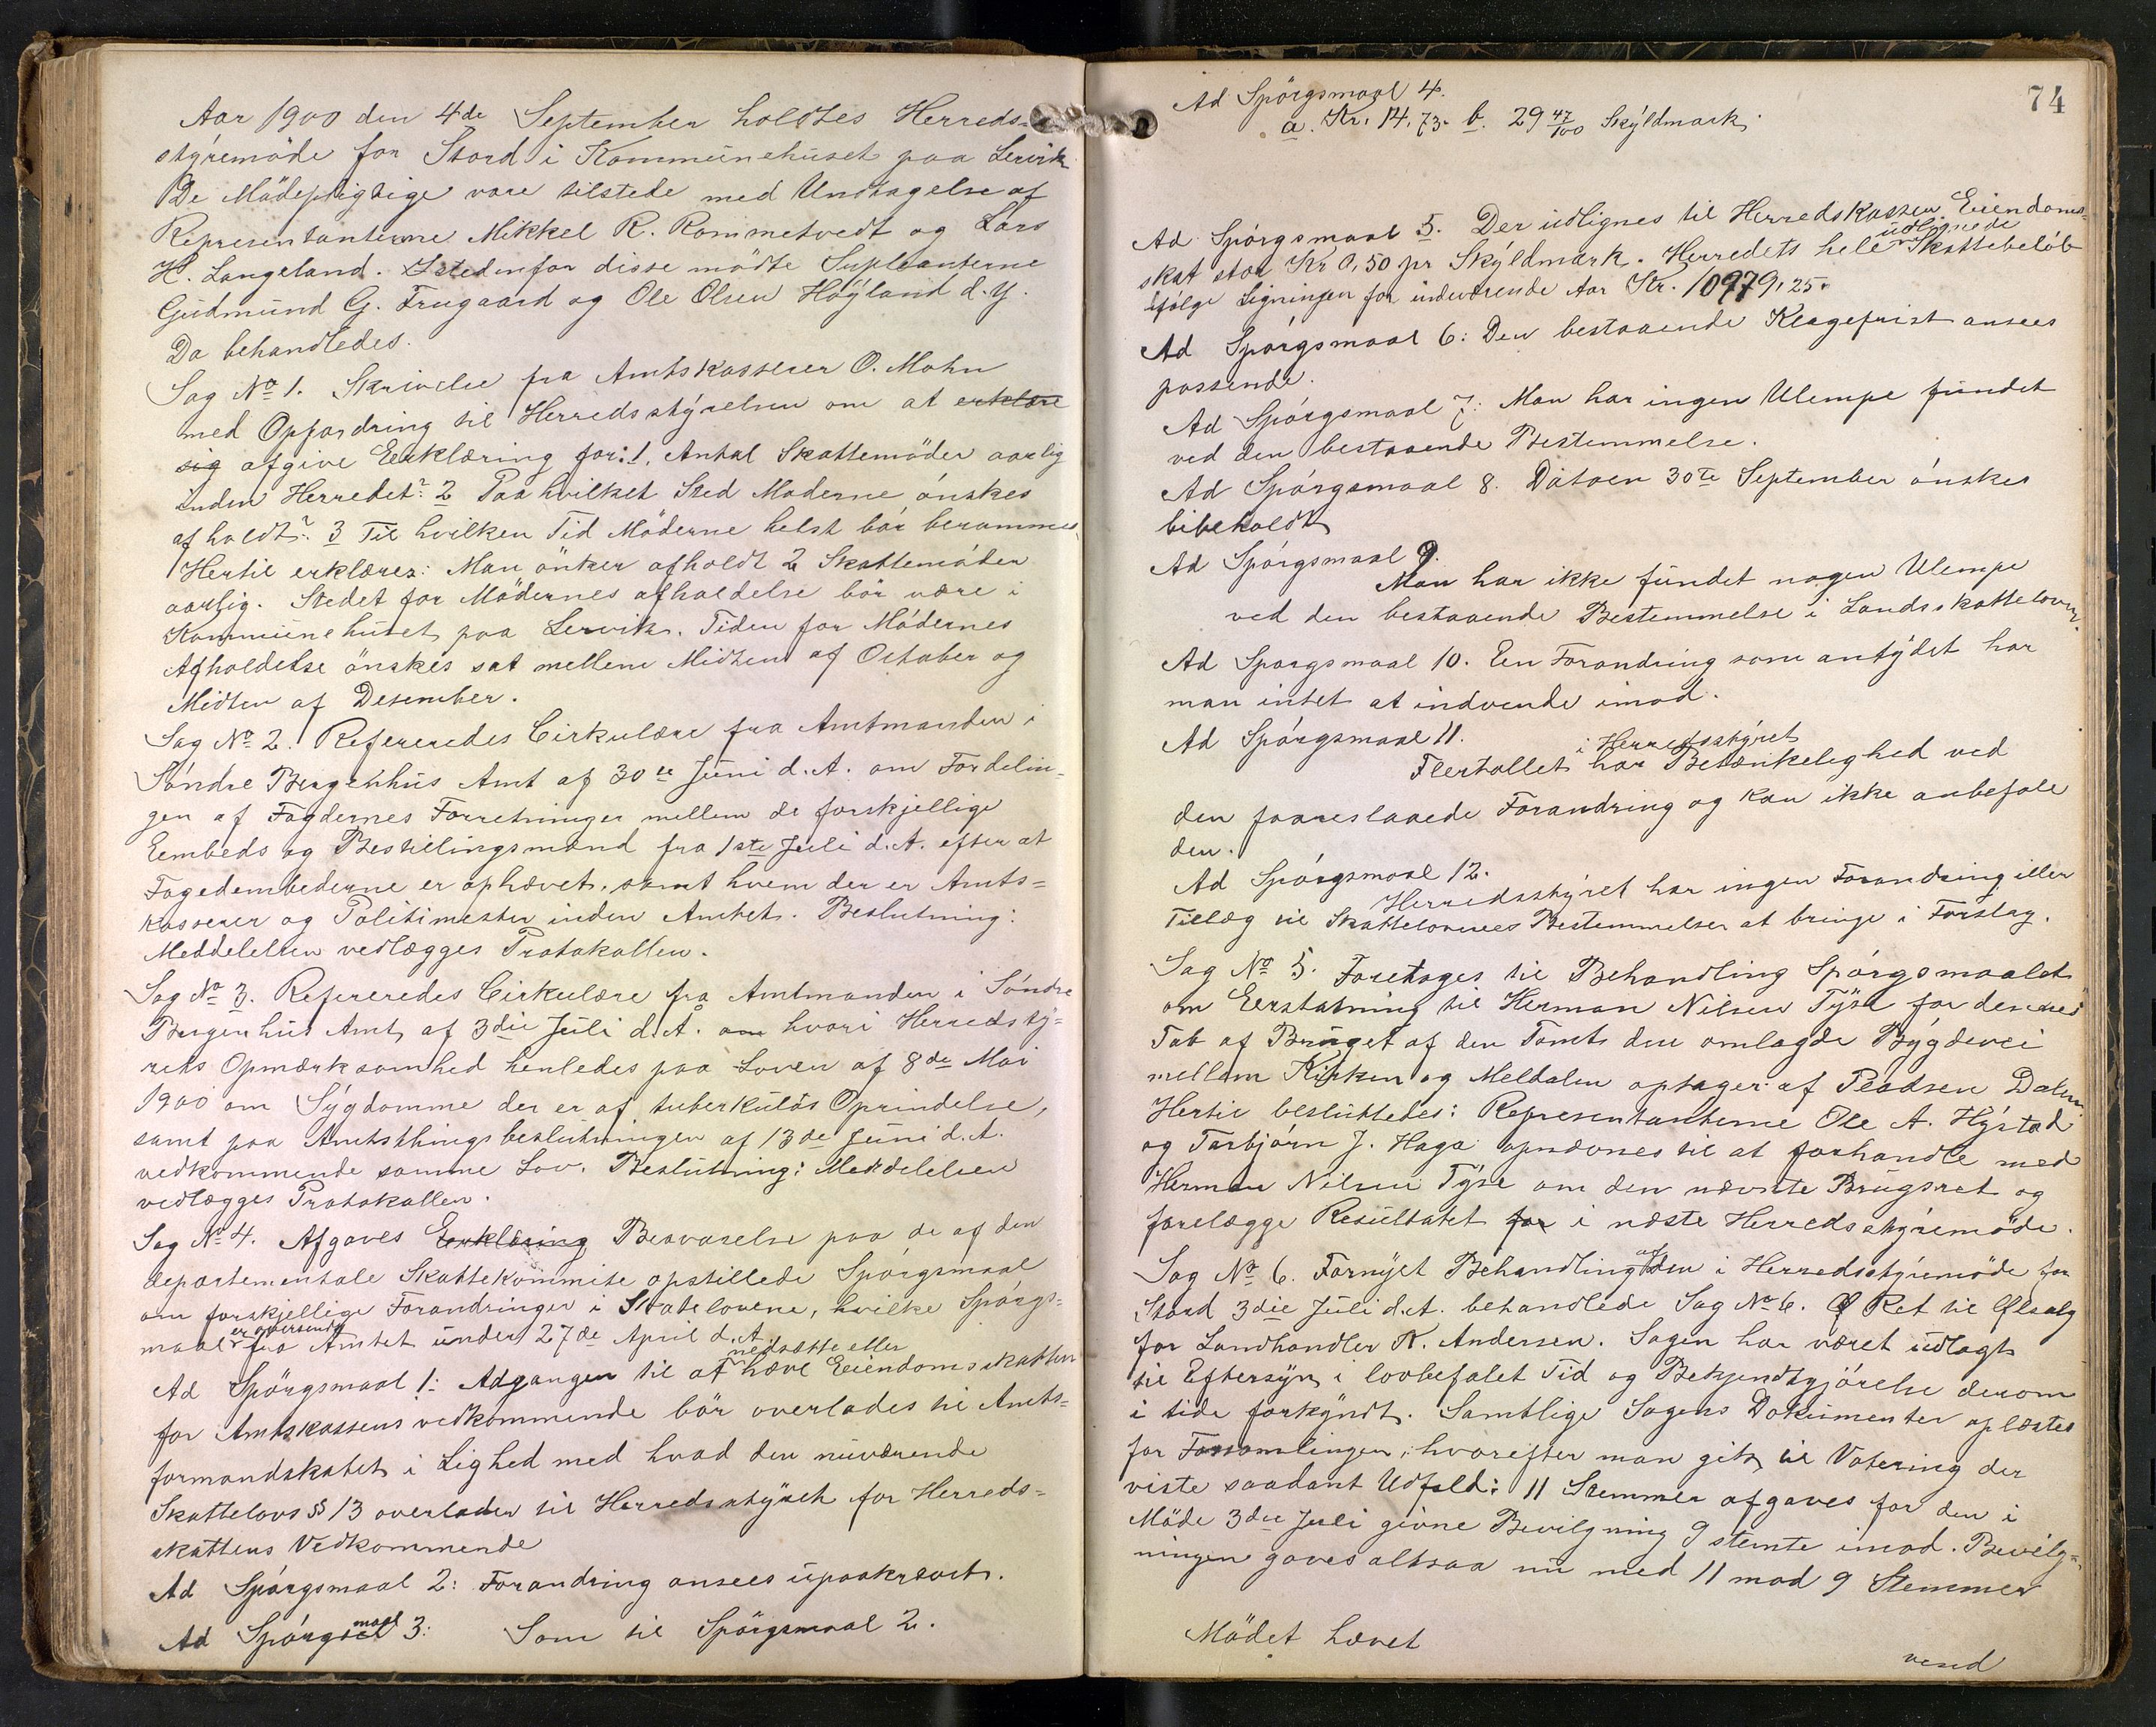 Aar 1900 den 4de September holdtes Herreds-
styremöde for Stord i Kommunehuset paa Lervik
De Mödepligtige vare tilstede med Undtagelse af
Representanterne Mikkel R. Rommetvedt og Lars
H. Langeland. Istedenfor disse mödte Supleanterne
Gudmund G. Frugaard og Ole Olsen Höyland d.y.
Da behandledes.
Sag No 1. Skrivelse fra Amtskasserer O. Mohn
med Opfordring til Herredsstyrelsen om at erklære
sig afgive Eerklæring for: 1. Antal Skattemöder aarlig
inden Herredet? 2 Paa hvilket Sted Moderne önskes
afholdt? 3 Til hvilken Tid Möderne helst bör berammes
Hertil erklæres: Man önker afholdt 2 Skattemöder
aarlig. Stedet for Mödernes afholdelse bör være i
Kommunehuset paa Lervik. Tiden for Mödernes
Afholdelse önskes sat mellem Midten af October og
Midten af Desember.
Sag No 2. Refereredes Cirkulære fra Amtmanden i
Söndre Bergenhus Amt af 30te Juni d.A. om Fordelin-
gen af Fogdernes Forretninger mellem de forskjellige
Eembeds og Bestillingsmænd fra 1ste Juli d.A. efter at
Fogedembederne er ophævet, samt hvem der er Amts=
kasserer og Politimester inden Amtet. Beslutning:
Meddelelsen vedlægges Protokollen.
Sag No 3. Refereredes Cirkulære fra Amtmanden i Söndre
Bergenhus Amt af 3die Juli d.A. om hvori Herredsty=
rets Opmærksomhed henledes paa Loven af 8de Mai
1900 om Sygdomme der er af tuberkulös Oprindelse,
samt paa Amtsthingsbeslutningen af 13de Juni d.A.
vedkommende samme Lov. Beslutning: Meddelelsen
vedlægges Protokollen.
Sag No 4. Afgaves Eerklæring Besvarelse paa de af den
departementale Skattekommite opstillede Spörgsmaal
om forskjellige Forandringer i Skatelovene, hvilke Spörgs=
maal er oversendt fra Amtet under 27de April d.A.
Ad Spörgsmaal 1: Adgangen til at nedsætte eller hæve Eeiendomsskatten
for Amtskassens vedkommende bör overlades til Amts=
formandskabet i Lighed med hvad den nuværende
Skattelovs § 13 overlader til Herredsstyret for Herreds=
skattens Vedkommende
Ad Spörgsmaal 2: Forandring ansees upaakrævet.
Ad Spörgsmaal 3: Som til Spörgsmaal 2.
74
Ad Spörgsmaal 4.
a. Kr. 14.73. b. 29 47/100 Skyldmark.
Ad Spörgsmaal 5. Der udlignes til Herredskassen Eiendoms=
skat stor Kr 0,50 pr Skyldmark. Herredets hele udlignede Skattebelöb
ifölge Ligningen for indeværende Aar Kr. 10979,25.
Ad Spörgsmaal 6: Den bestaaende Klagefrist ansees
passende.
Ad Spörgsmaal 7: Man har ingen Ulempe fundet
ved den bestaaende Bestemmelse.
Ad Spörgsmaal 8. Datoen 30te September önskes
bibeholdt
Ad Spörgsmaal 9.
Man har ikke fundet nogen Ulempe
ved den bestaaende Bestemmelse i Landsskatteloven.
Ad Sporgsmaal 10. Een Forandring som antydet har
man intet at indvende imod.
Ad Spörgsmaal 11.
Flertallet i Herredsstyret har Betænkelighed ved
den foareslaaede Forandring og kan ikke anbefale
den.
Ad Spörgsmaal 12.
Herredsstyret har ingen Forandring eller
Tillæg til Skattelovenes Bestemmelser at bringe i Forslag.
Sag No 5. Foretages til Behandling Spörgsmaalet
om Eerstatning til Herman Nilsen Tyse for dennes
Tab af Bruget af den Tomt den omlagde Bygdevei
mellem Kirken og Meldalen optager af Pladsen Dalen.
Hertil besluttedes: Representanterne Ole A. Hystad
og Torbjörn J. Haga opnævnes til at forhandle med
Herman Nilsen Tyse om den nævnte Brugsret og
forelægge Resultatet for i næste Herredsstyremöde.
Sag No 6. Fornyet Behandling af den i Herredsstyremöde for
Stord 3die Juli d.A. behandlede Sag No 6. Ret til Ølsalg
for Landhandler K. Andersen. Sagen har været udlagt
til Eftersyn i lovbefalet Tid og Bekjendtgjörelse derom
i tide forkyndt. Samtlige Sagens Dokumenter oplæstes
for Forsamlingen, hvorefter man gik til Votering der
viste saadant Udfald: 11 Stemmer afgaves for den i
Möde 3die Juli givne Bevilgning 9 stemte imod. Bevilg=
ningen gaves altsaa nu med 11 mod 9 Stemmer
Mödet hævet
vend